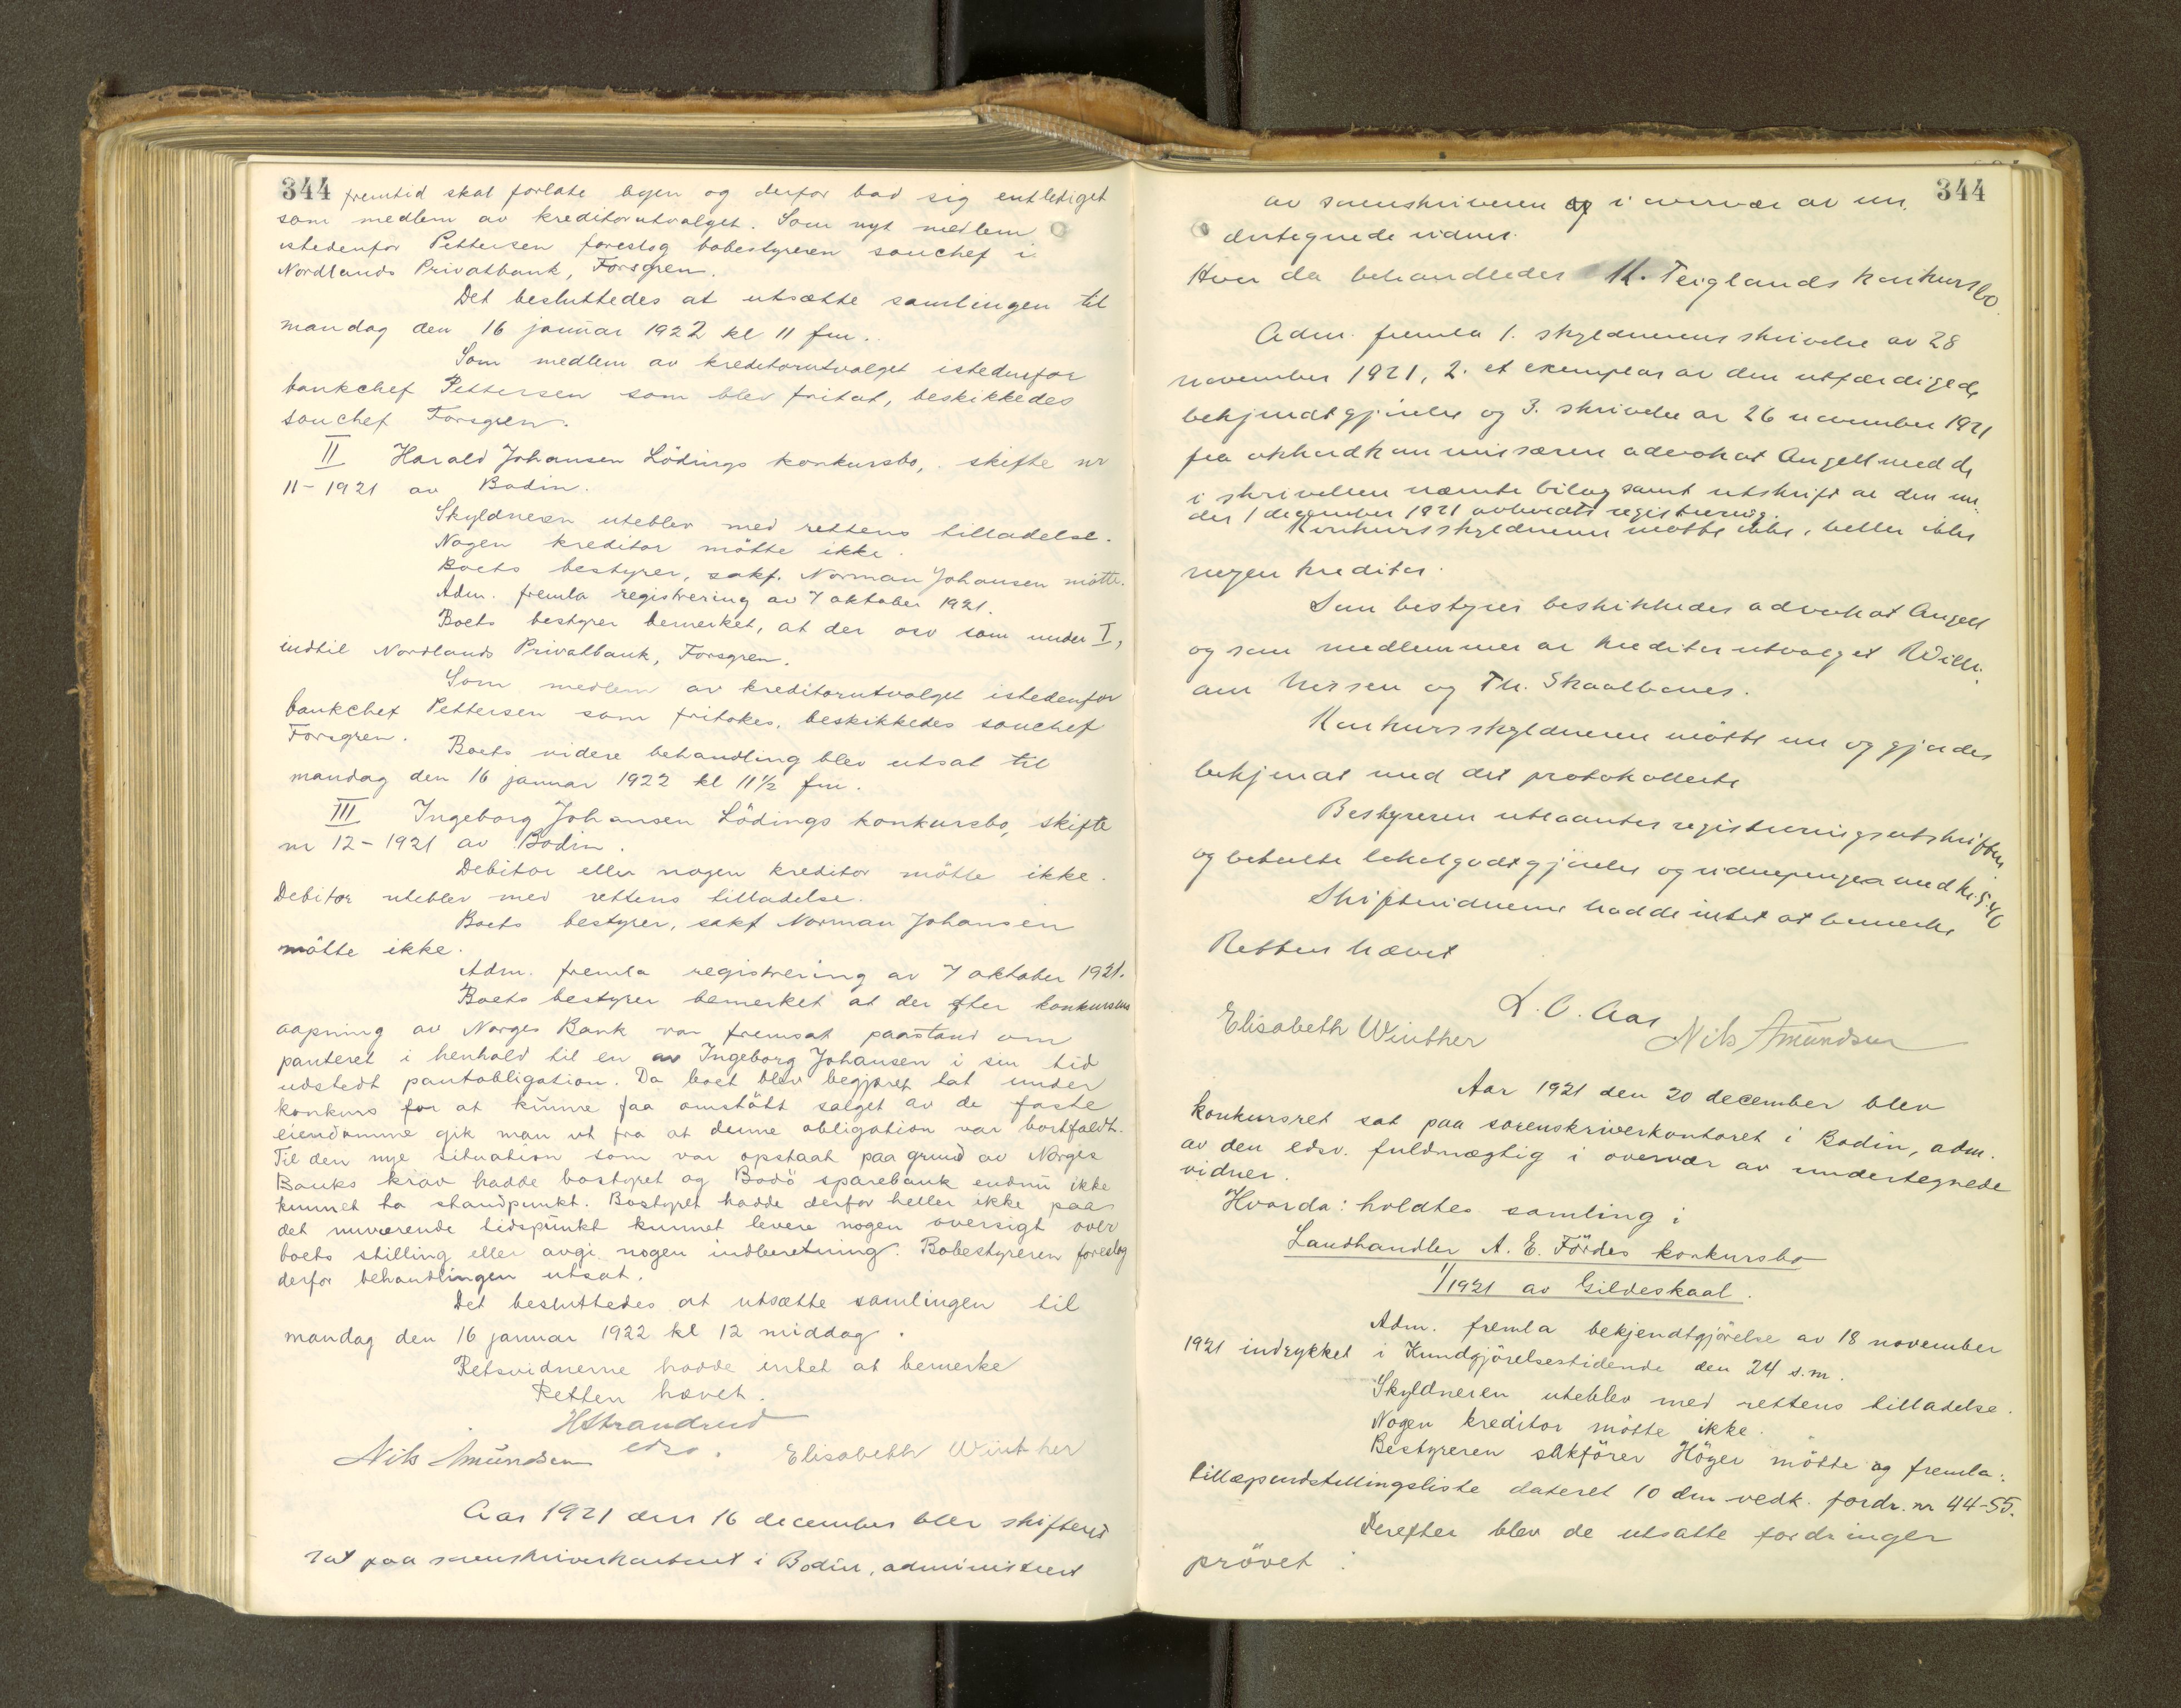 344 fremtid skal forlate byen og derfor bad sig entlediget
som medlem av kreditorutvalget. Som nyt medlem
istedenfor Pettersen foreslog bobestyreren souchef i
Nordlands Privatbank, Forsgren.
Det besluttedes at utsætte samlingen til
mandag den 16 januar 1922 kl 11 fm.
Som medlem av kreditorutvalget istedenfor
bankchef Pettersen som blev fritat, beskikkedes
souchef Forsgren.
II Harald Johansen Lödings konkursbo, skifte nr
11-1921 av Bodin.
Skyldneren uteblev med rettens tilladelse.
Nogen kreditor mötte ikke.
Boets bestyrer, sakf. Norman Johansen mötte.
Adm. fremla registrering av 7 oktober 1921.
Boets bestyrer bemerket, at der osv som under I,
indtil Nordlands Privatbank, Forsgren.
Som medlem av kreditorutvalget istedenfor
bankchef Pettersen som fritokes, beskikkedes souchef
Forsgren.
Boets videre behandling blev utsat til
mandag den 16 januar 1922 kl 11½ fm.
III Ingeborg Johansen Lödings konkursbo, skifte
nr 12-1921 av Bodin.
Debitor eller nogen kreditor mötte ikke.
Debitor uteblev med rettens tilladelse.
Boets bestyrer, sakf Norman Johansen
mötte ikke.
Adm. fremla registrering av 7 oktober 1921.
Boets bestyrer bemerket at der efter konkursens
aapning av Norges Bank var fremsat paastand om
panteret i henhold til en av Ingeborg Johansen i sin tid
udstedt pantobligation. Da boet blev begjæret tat under
konkurs for at kunne faa omstött salget av de faste
eiendomme gik man ut fra at denne obligation var bortfaldt.
Til den nye situation som var opstaat paa grund av Norges
Banks krav hadde bostyret og Bodö sparebank endnu ikke
kunnet ta standpunkt. Bostyret hadde derfor heller ikke paa
det nuværende tidspunkt kunnet levere nogen oversigt over
boets stilling eller avgi nogen indberetning. Bobestyreren foreslog
derfor behandlingen utsat.
Det besluttedes at utsætte samlingen til
mandag den 16 januar 1922 kl 12 middag.
Retsvidnerne hadde intet at bemerke
Retten hævet.
HStrandrud
edsv.
Nils Amundsen Elisabeth Winther
Aar 1921 den 16 december blev skifteret
sat paa sorenskriverkontoret i Bodin, administrert
344
av sorenskriveren og i overvær av un-
dertegnede vidner.
Hvor da behandledes K. Teiglands konkursbo.
Adm. fremla 1. skyldnerens skrivelse av 28
november 1921, 2. et exemplar av den utfærdigede
bekjendtgjörelse og 3. skrivelse av 26 november 1921
fra akkordkommissæren advokat Angell med de
i skrivelsen nævnte bilag samt utskrift av den un-
der 1 december 1921 avholdte registrering.
Konkursskyldneren mötte ikke, heller ikke
nogen kreditor.
Som bestyrer beskikkedes advokat Angell
og som medlemmer av kreditorutvalget Willi-
am Nissen og Th. Skaalbones.
Konkursskyldneren mötte nu og gjordes
bekjendt med det protokollerte
Bestyreren utlaantes registreringsutskriften
og betalte lokalgodtgjörelse og vidnepenger med kr. 5.40
Skiftevidnerne hadde intet at bemerke
Retten hævet
L. O. Aas
Elisabeth Winther Nils Amundsen
Aar 1921 den 20 december blev
konkursret sat paa sorenskriverkontoret i Bodin, adm.
av den edsv. fuldmægtig i overvær av undertegnede
vidner.
Hvorda: holdtes samling i
Landhandler A. E. Fördes konkursbo
1/1921 av Gildeskaal.
Adm. fremla bekjendtgjörelse av 18 november
1921 indrykket i Kundgjörelsestidende den 24 s.m.
Skyldneren uteblev med rettens tilladelse.
Nogen kreditor mötte ikke.
Bestyreren sakförer Höyer mötte og fremla:
tillægsindstillingsliste dateret 10 dm vedk. fordr. nr 44-55.
Derefter blev de utsatte fordringer
prövet: